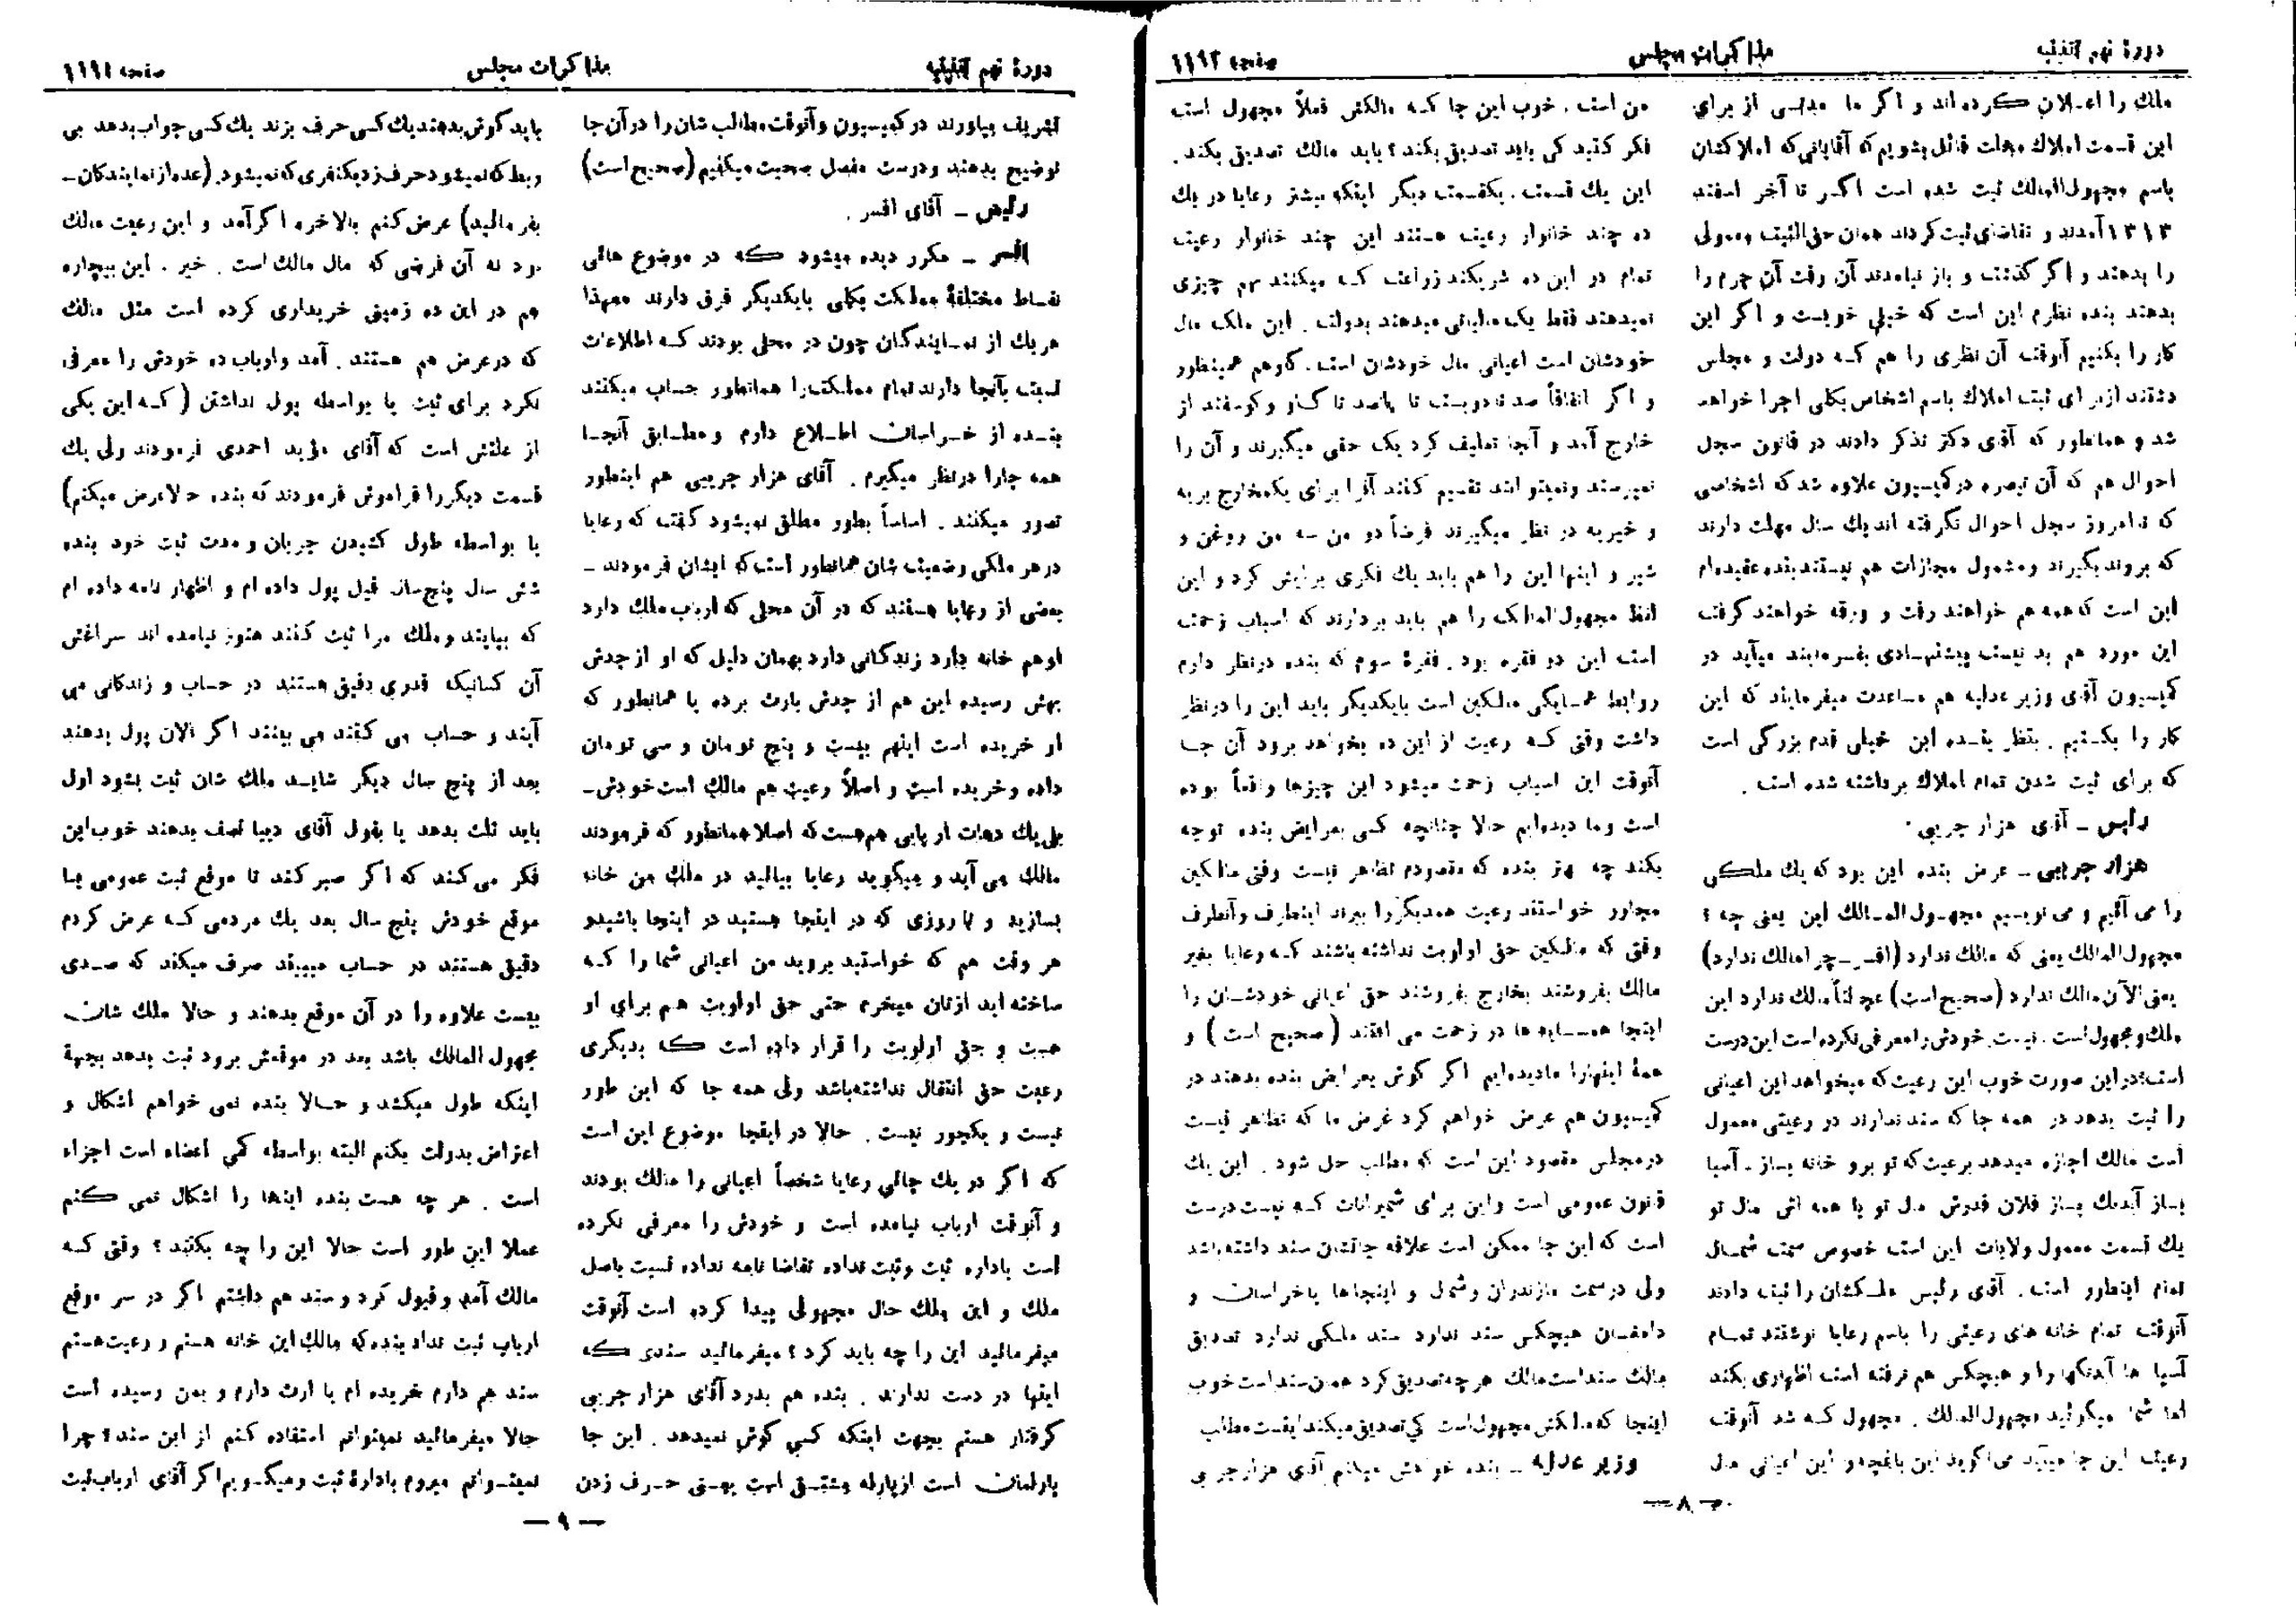 دورهٔ نهم تقنینیه
مذاکرات مجلس
صفحه ۱۱۹۲
ملك را اعلان کرده اند و اگر ما مدتی از برای
این قسمت املاك مهلت قائل بشویم که آقایانی که املاکشان
باسم مجهول المالك ثبت شده است اگر تا آخر اسفند
۱۳۱۳ آمدند و تقاضای ثبت کردند همان حق الثبت معمولی
را بدهند و اگر گذشت و باز نیامدند آن وقت آن جرم را
بدهند بنده نظرم این است که خیلی خوبست و اگر این
کار را بکنیم آنوقت آن نظری را هم که دولت و مجلس
داشتند از برای ثبت املاك باسم اشخاص بکلی اجرا خواهد
شد و همانطور که آقای دکتر تذکر دادند در قانون سجل
احوال هم که آن تبصره در کمیسیون علاوه شد که اشخاصی
که تا امروز سجل احوال نگرفته اند یك سال مهلت دارند
که بروند بگیرند و مشمول مجازات هم نیستند بنده عقیده‌ام
این است که همه هم خواهند رفت و ورقه خواهند گرفت
این مورد هم بد نیست پیشنهادی بفرمایند میآید در
کمیسیون آقای وزیر عدلیه هم مساعدت میفرمایند که این
کار را بکنیم . بنظر بنده این خیلی قدم بزرگی است
که برای ثبت شدن تمام املاك برداشته شده است .
رئیس ـ آقای هزار جریبی .
هزار جریبی ـ عرض بنده این بود که یك ملکی
را می آئیم و می نویسیم مجهول المالك این یعنی چه ؟
مجهول المالك یعنی که مالك ندارد (افسر ـ چرا مالك ندارد)
یعنی الآن مالك ندارد (صحیح است) عجالتاً مالك ندارد این
ملك و مجهول است . نیست. خودش را معرفی نکرده است این درست
است؛ در این صورت خوب این رعیت که میخواهد این اعیانی
را ثبت بدهد در همه جا که سند ندارند در رعیتی معمول
است مالك اجازه میدهد برعیت که تو برو خانه بساز ـ آسیا
بساز آبدنك بساز فلان قدرش مال تو یا همه اش مال تو
یك قسمت معمول ولایات این است خصوص سمت شمال
تمام اینطور است . آقای رئیس ملکشان را ثبت دادند
آنوقت تمام خانه های رعیتی را باسم رعایا نوشتند تمام
آسیا ها آبدنگها را و هیچکس هم نرفته است اظهاری بکند
اما شما میگوئید مجهول المالك . مجهول که شد آنوقت
رعیت این جا میآید می گوید این باغچه و این اعیانی مال
من است . خوب این جا که مالکش فعلاً مجهول است
فکر کنید کی باید تصدیق بکند؟ باید مالك تصدیق بکند .
این یك قسمت . یکقسمت دیگر اینکه بیشتر رعایا در یك
ده چند خانوار رعیت هستند این چند خانوار رعیت
تمام در این ده شریکند زراعت که میکنند سهم چیزی
نمیدهند فقط یك مالیاتی میدهند بدولت . این ملك مال
خودشان است اعیانی مال خودشان است . گاوهم همینطور
و اگر اتفاقاً صد تا دویست تا پانصد تا گاو و گوسفند از
خارج آمد و آنجا تعلیف کرد یك حقی میگیرند و آن را
نمیرسند و نمیتوانند تقسیم کنند آنرا برای یك مخارج بریه
و خیریه در نظر میگیرند فرضاً دو من سه من روغن و
شیر و اینها این را هم باید یك فکری برایش کرد و این
لفظ مجهول المالك را هم باید بردارند که اسباب زحمت
است این دو فقره بود . فقرهٔ سوم که بنده درنظر دارم
روابط همسایگی مالکین است بایکدیگر باید این را درنظر
داشت وقتی که رعیت از این ده بخواهد برود آن جا
آنوقت این اسباب زحمت میشود این چیزها واقعاً بوده
است و ما دیده‌ایم حالا چنانچه کسی بعرایض بنده توجه
بکند چه بهتر بنده که مقصودم تظاهر نیست وقتی مالکین
مجاور خواستند رعیت همدیگر را ببرند اینطرف و آنطرف
وقتی که مالکین حق اولویت نداشته باشند که رعایا بغیر
مالك بفروشند بخارج بفروشند حق اعیانی خودشان را
اینجا همسایه ها در زحمت می افتند (صحیح است) و
همهٔ اینهارا مادیده‌ایم اگر گوش بعرایض بنده بدهند در
کمیسیون هم عرض خواهم کرد غرض ما که تظاهر نیست
در مجلس مقصود این است که مطالب حل شود . این یك
قانون عمومی است و این برای شمیرانات که نیست درست
است که این جا ممکن است علاقه جاتشان سند داشته باشد
ولی در سمت مازندران و شمال و اینجاها یا خراسان و
دامغان هیچکس سند ندارد سند ملکی ندارد تصدیق
مالك سند است مالك هرچه تصدیق کرد همان سند است خوب
اینجا که مالکش مجهول است کی تصدیق میکند اینست مطالب
وزیر عدلیه ـ بنده خواهش میکنم آقای هزار جریبی
— ۸ —
دورهٔ نهم تقنینیه
مذاکرات مجلس
صفحه ۱۱۹۱
تشریف بیاورند در کمیسیون و آنوقت مطالب شان را در آن جا
توضیح بدهند و درست مفصل صحبت میکنیم (صحیح است)
رئیس ـ آقای افسر .
افسر ـ مکرر دیده میشود که در موضوع هائی
نقاط مختلفهٔ مملکت بکلی بایکدیگر فرق دارند معهذا
هریك از نمایندگان چون در محلی بودند که اطلاعات
نسبت بآنجا دارند تمام مملکت را همانطور حساب میکنند
بنده از خراسان اطلاع دارم و مطابق آنجا
همه جارا درنظر میگیرم . آقای هزار جریبی هم اینطور
تصور میکنند . اساساً بطور مطلق نمیشود گفت که رعایا
درهر ملکی وضعیت شان همانطور است که ایشان فرمودند ـ
بعضی از رعایا هستند که در آن محلی که ارباب ملك دارد
اوهم خانه دارد زندگانی دارد بهمان دلیل که او از جدش
بهش رسیده این هم از جدش بارث برده یا همانطور که
او خریده است اینهم بیست و پنج تومان و سی تومان
داده و خریده است و اصلاً رعیت هم مالك است خودش ـ
بلی یك دهات اربابی هم هست که اصلا همانطور که فرمودند
مالك می آید و میگوید رعایا بیائید در ملك من خانه
بسازید و تا روزی که در اینجا هستید در اینجا باشید و
هر وقت هم که خواستید بروید من اعیانی شما را که
ساخته اید ازتان میخرم حتی حق اولویت هم برای او
هست و حق اولویت را قرار داده است که بدیگری
رعیت حق انتقال نداشته باشد ولی همه جا که این طور
نیست و یکجور نیست . حالا در اینجا موضوع این است
که اگر در یك جائی رعایا شخصاً اعیانی را مالك بودند
و آنوقت ارباب نیامده است و خودش را معرفی نکرده
است باداره ثبت و ثبت نداده تقاضا نامه نداده نسبت باصل
ملك و این ملك حال مجهولی پیدا کرده است آنوقت
میفرمائید این را چه باید کرد ؟ میفرمائید سندی که
اینها در دست ندارند . بنده هم بدرد آقای هزار جریبی
گرفتار هستم بجهت اینکه کسی گوش نمیدهد . این جا
پارلمان است از پارله مشتق است یعنی حرف زدن
باید گوش بدهند یك کسی حرف بزند یك کسی جواب بدهد بی
ربط که نمیشود حرف زد یکنفری که نمیشود. (عده از نمایندگان ـ
بفرمائید) عرض کنم بالاخره اگر آمد و این رعیت مالك
بود نه آن فرضی که مال مالك است . خیر . این بیچاره
هم در این ده زمینی خریداری کرده است مثل مالك
که درعرض هم هستند . آمد و ارباب ده خودش را معرفی
نکرد برای ثبت یا بواسطه پول نداشتن (که این یکی
از علتش است که آقای مؤید احمدی فرمودند ولی یك
قسمت دیگر را فراموش فرمودند که بنده حالا عرض میکنم)
یا بواسطه طول کشیدن جریان و مدت ثبت خود بنده
شش سال پنج سال قبل پول داده ام و اظهار نامه داده ام
که بیایند و ملك مرا ثبت کنند هنوز نیامده اند سراغش
آن کسانیکه قدری دقیق هستند در حساب و زندگانی می
آیند و حساب می کنند می بینند اگر الان پول بدهند
بعد از پنج سال دیگر شاید ملك شان ثبت بشود اول
باید ثلث بدهد یا بقول آقای دیبا نصف بدهند خوب این
فکر می کند که اگر صبر کند تا موقع ثبت عمومی یا
موقع خودش پنج سال بعد یك مردمی که عرض کردم
دقیق هستند در حساب میبیند صرف میکند که صدی
بیست علاوه را در آن موقع بدهند و حالا ملك شان
مجهول المالك باشد بعد در موقعش برود ثبت بدهد بجهة
اینکه طول میکشد و حالا بنده نمی خواهم اشکال و
اعتراض بدولت بکنم البته بواسطه کمی اعضاء است اجزاء
است . هر چه هست بنده اینها را اشکال نمی کنم
عملا این طور است حالا این را چه بکنید ؟ وقتی که
مالك آمد و قبول کرد و سند هم داشتم اگر در سر موقع
ارباب ثبت نداد بنده که مالك این خانه هستم و رعیت هستم
سند هم دارم خریده ام یا ارث دارم و بمن رسیده است
حالا میفرمائید نمیتوانم استفاده کنم از این سند؟ چرا
نمیتوانم میروم بادارهٔ ثبت و میگویم اگر آقای ارباب ثبت
— ۹ —